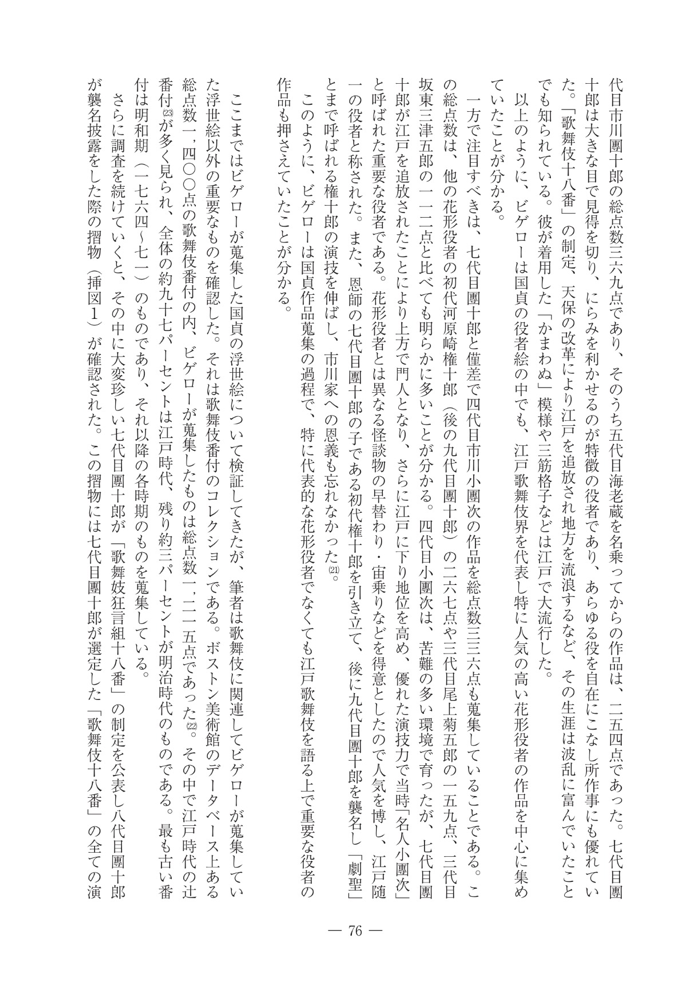 代目市川團十郎の総点数三六九点であり、そのうち五代目海老蔵を名乗ってからの作品は、二五四点であった。七代目團
十郎は大きな目で見得を切り、にらみを利かせるのが特徴の役者であり、あらゆる役を自在にこなし所作事にも優れてい
た。「歌舞伎十八番」の制定、天保の改革により江戸を追放され地方を流浪するなど、その生涯は波乱に富んでいたこと
でも知られている。彼が着用した「かまわぬ」模様や三筋格子などは江戸で大流行した。
以上のように、ビゲローは国貞の役者絵の中でも、江戸歌舞伎界を代表し特に人気の高い花形役者の作品を中心に集め
ていたことが分かる。
一方で注目すべきは、七代目團十郎と僅差で四代目市川小團次の作品を総点数三三六点も蒐集していることである。こ
の総点数は、他の花形役者の初代河原崎権十郎（後の九代目團十郎）の二六七点や三代目尾上菊五郎の一五九点、三代目
坂東三津五郎の一一二点と比べても明らかに多いことが分かる。四代目小團次は、苦難の多い環境で育ったが、七代目團
十郎が江戸を追放されたことにより上方で門人となり、さらに江戸に下り地位を高め、優れた演技力で当時「名人小團次」
と呼ばれた重要な役者である。花形役者とは異なる怪談物の早替わり・宙乗りなどを得意としたので人気を博し、江戸随
一の役者と称された。また、恩師の七代目團十郎の子である初代権十郎を引き立て、後に九代目團十郎を襲名し「劇聖」
とまで呼ばれる権十郎の演技を伸ばし、市川家への恩義も忘れなかった(21)。
このように、ビゲローは国貞作品蒐集の過程で、特に代表的な花形役者でなくても江戸歌舞伎を語る上で重要な役者の
作品も押さえていたことが分かる。
ここまではビゲローが蒐集した国貞の浮世絵について検証してきたが、筆者は歌舞伎に関連してビゲローが蒐集してい
た浮世絵以外の重要なものを確認した。それは歌舞伎番付のコレクションである。ボストン美術館のデータベース上ある
総点数一，四〇〇点の歌舞伎番付の内、ビゲローが蒐集したものは総点数一，二一五点であった(22)。その中で江戸時代の辻
番付(23)が多く見られ、全体の約九十七パーセントは江戸時代、残り約三パーセントが明治時代のものである。最も古い番
付は明和期（一七六四～七一）のものであり、それ以降の各時期のものを蒐集している。
さらに調査を続けていくと、その中に大変珍しい七代目團十郎が「歌舞妓狂言組十八番」の制定を公表し八代目團十郎
が襲名披露をした際の摺物（挿図１）が確認された。この摺物には七代目團十郎が選定した「歌舞伎十八番」の全ての演
― 76 ―